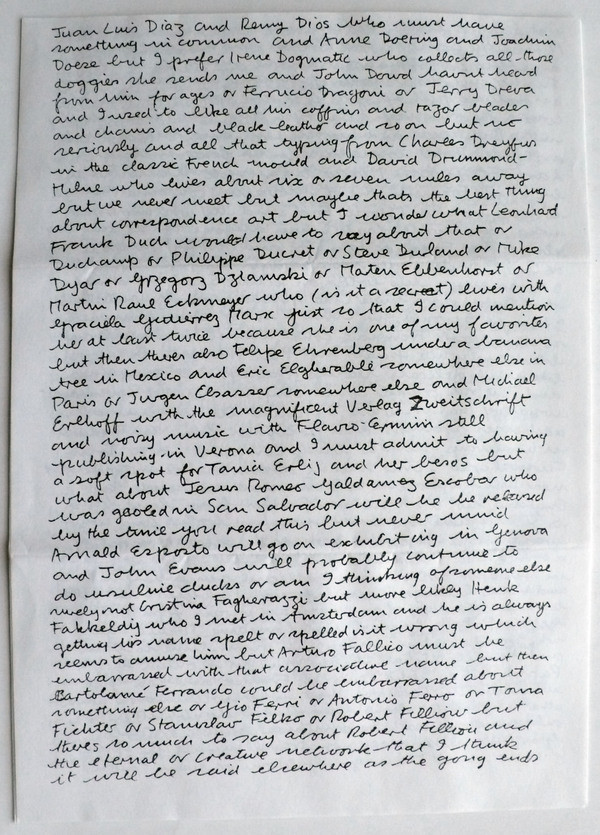 Juan Luis Diaz and Remy Dios who must have
something in common and Anne Doering and Joachim
Doese but I prefer Irene Dogmatic who collects all those
doggies she sends me and John Dowd havnt heard
from him for ages or Ferrucio Dragoni or Jerry Dreva
and I used to like all his coffins and razor blades
and chains and black leather and so on but no
seriously and all that typing from Charles Dreyfus
in the classic French mould and David Drummond-
Milne who lives about six or seven miles away
but we never meet but maybe thats the best thing
about correspondence art but I wonder what Leonhard
Frank Duch would have to say about that or
Duchamp or Philippe Ducret or Steve Durland or Mike
Dyar or Grzegorz Dziamski or Maten Ebbenhorst or
Martin Raul Eckmeyer who (is it a secret) lives with
Graciela Gutierrez Marx just so that I could mention
her at least twice because she is one of my favorites
but then theres also Felipe Ehrenberg under a banana
tree in Mexico and Eric Elgherable somewhere else in
Paris or Jurgen Elsasser somewhere else and Michael
Erlhoff with the magnificent Verlag Zweitschrift
and noisy music with Flavio Ermini still
publishing in Verona and I must admit to having
a soft spot for Tania Erlij and her besos but
what about Jesus Romeo Galdamez Escobar who
was gaoled in San Salvador will he be released
by the time you read this but never mind
Arnald Exposto will go on exhibiting in Genova
and John Evans will probably continue to
do ursuline ducks or am I thinking of someone else
surely not Cristina Fagherazzi but more likely Henk
Fakkeldij who I met in Amsterdam and he is always
getting his name spelt or spelled is it wrong which
seems to amuse him but Arturo Fallico must be
embarrassed with that associative name but then
Bartolamé Ferrando could be embarrassed about
something else or Gio Ferri or Antonio Ferro or Toma
Fichter or Stanislav Filko or Robert Filliou but
theres so much to say about Robert Filliou and
the eternal or creative network that I think
it will be said elsewhere as the gong ends